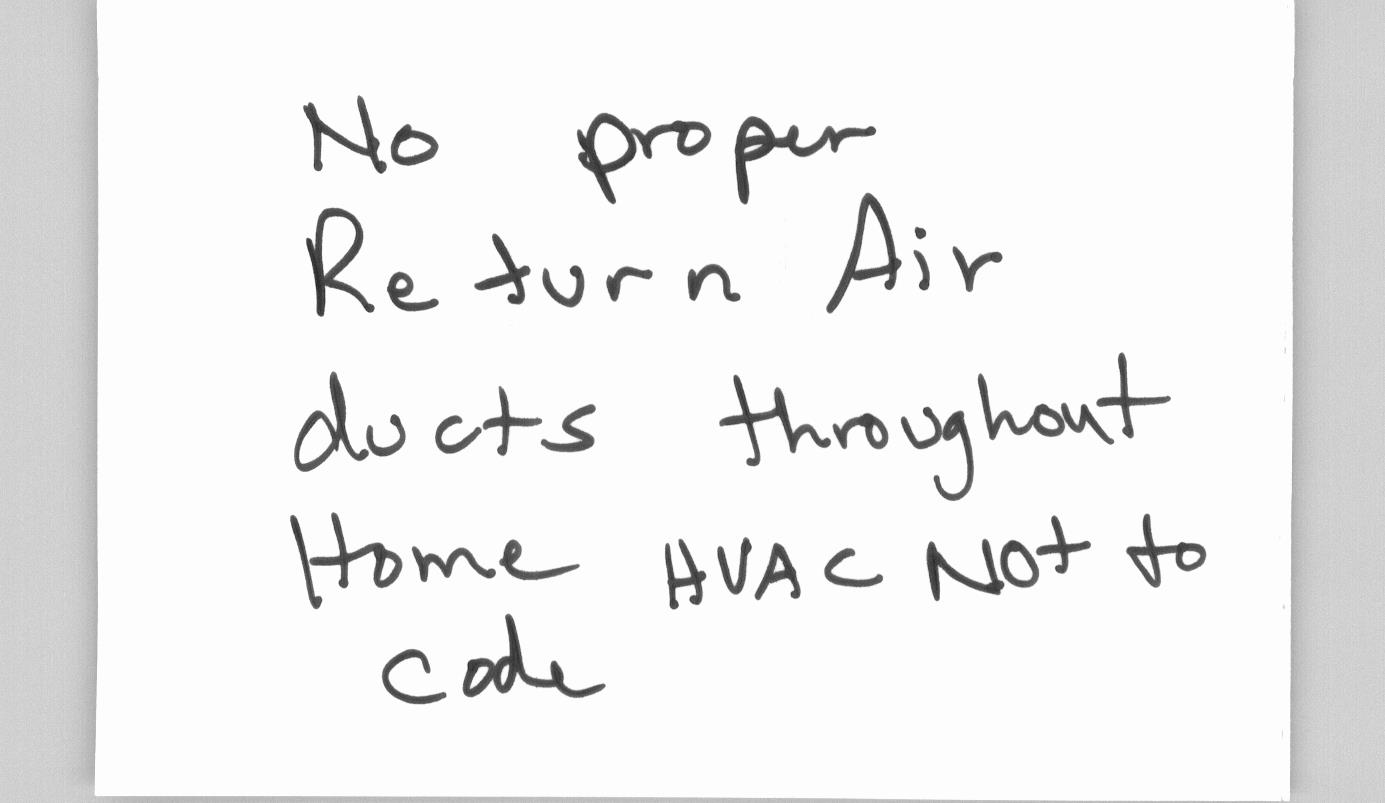 No proper
Return Air
ducts throughout
Home HVAC NOt to
code